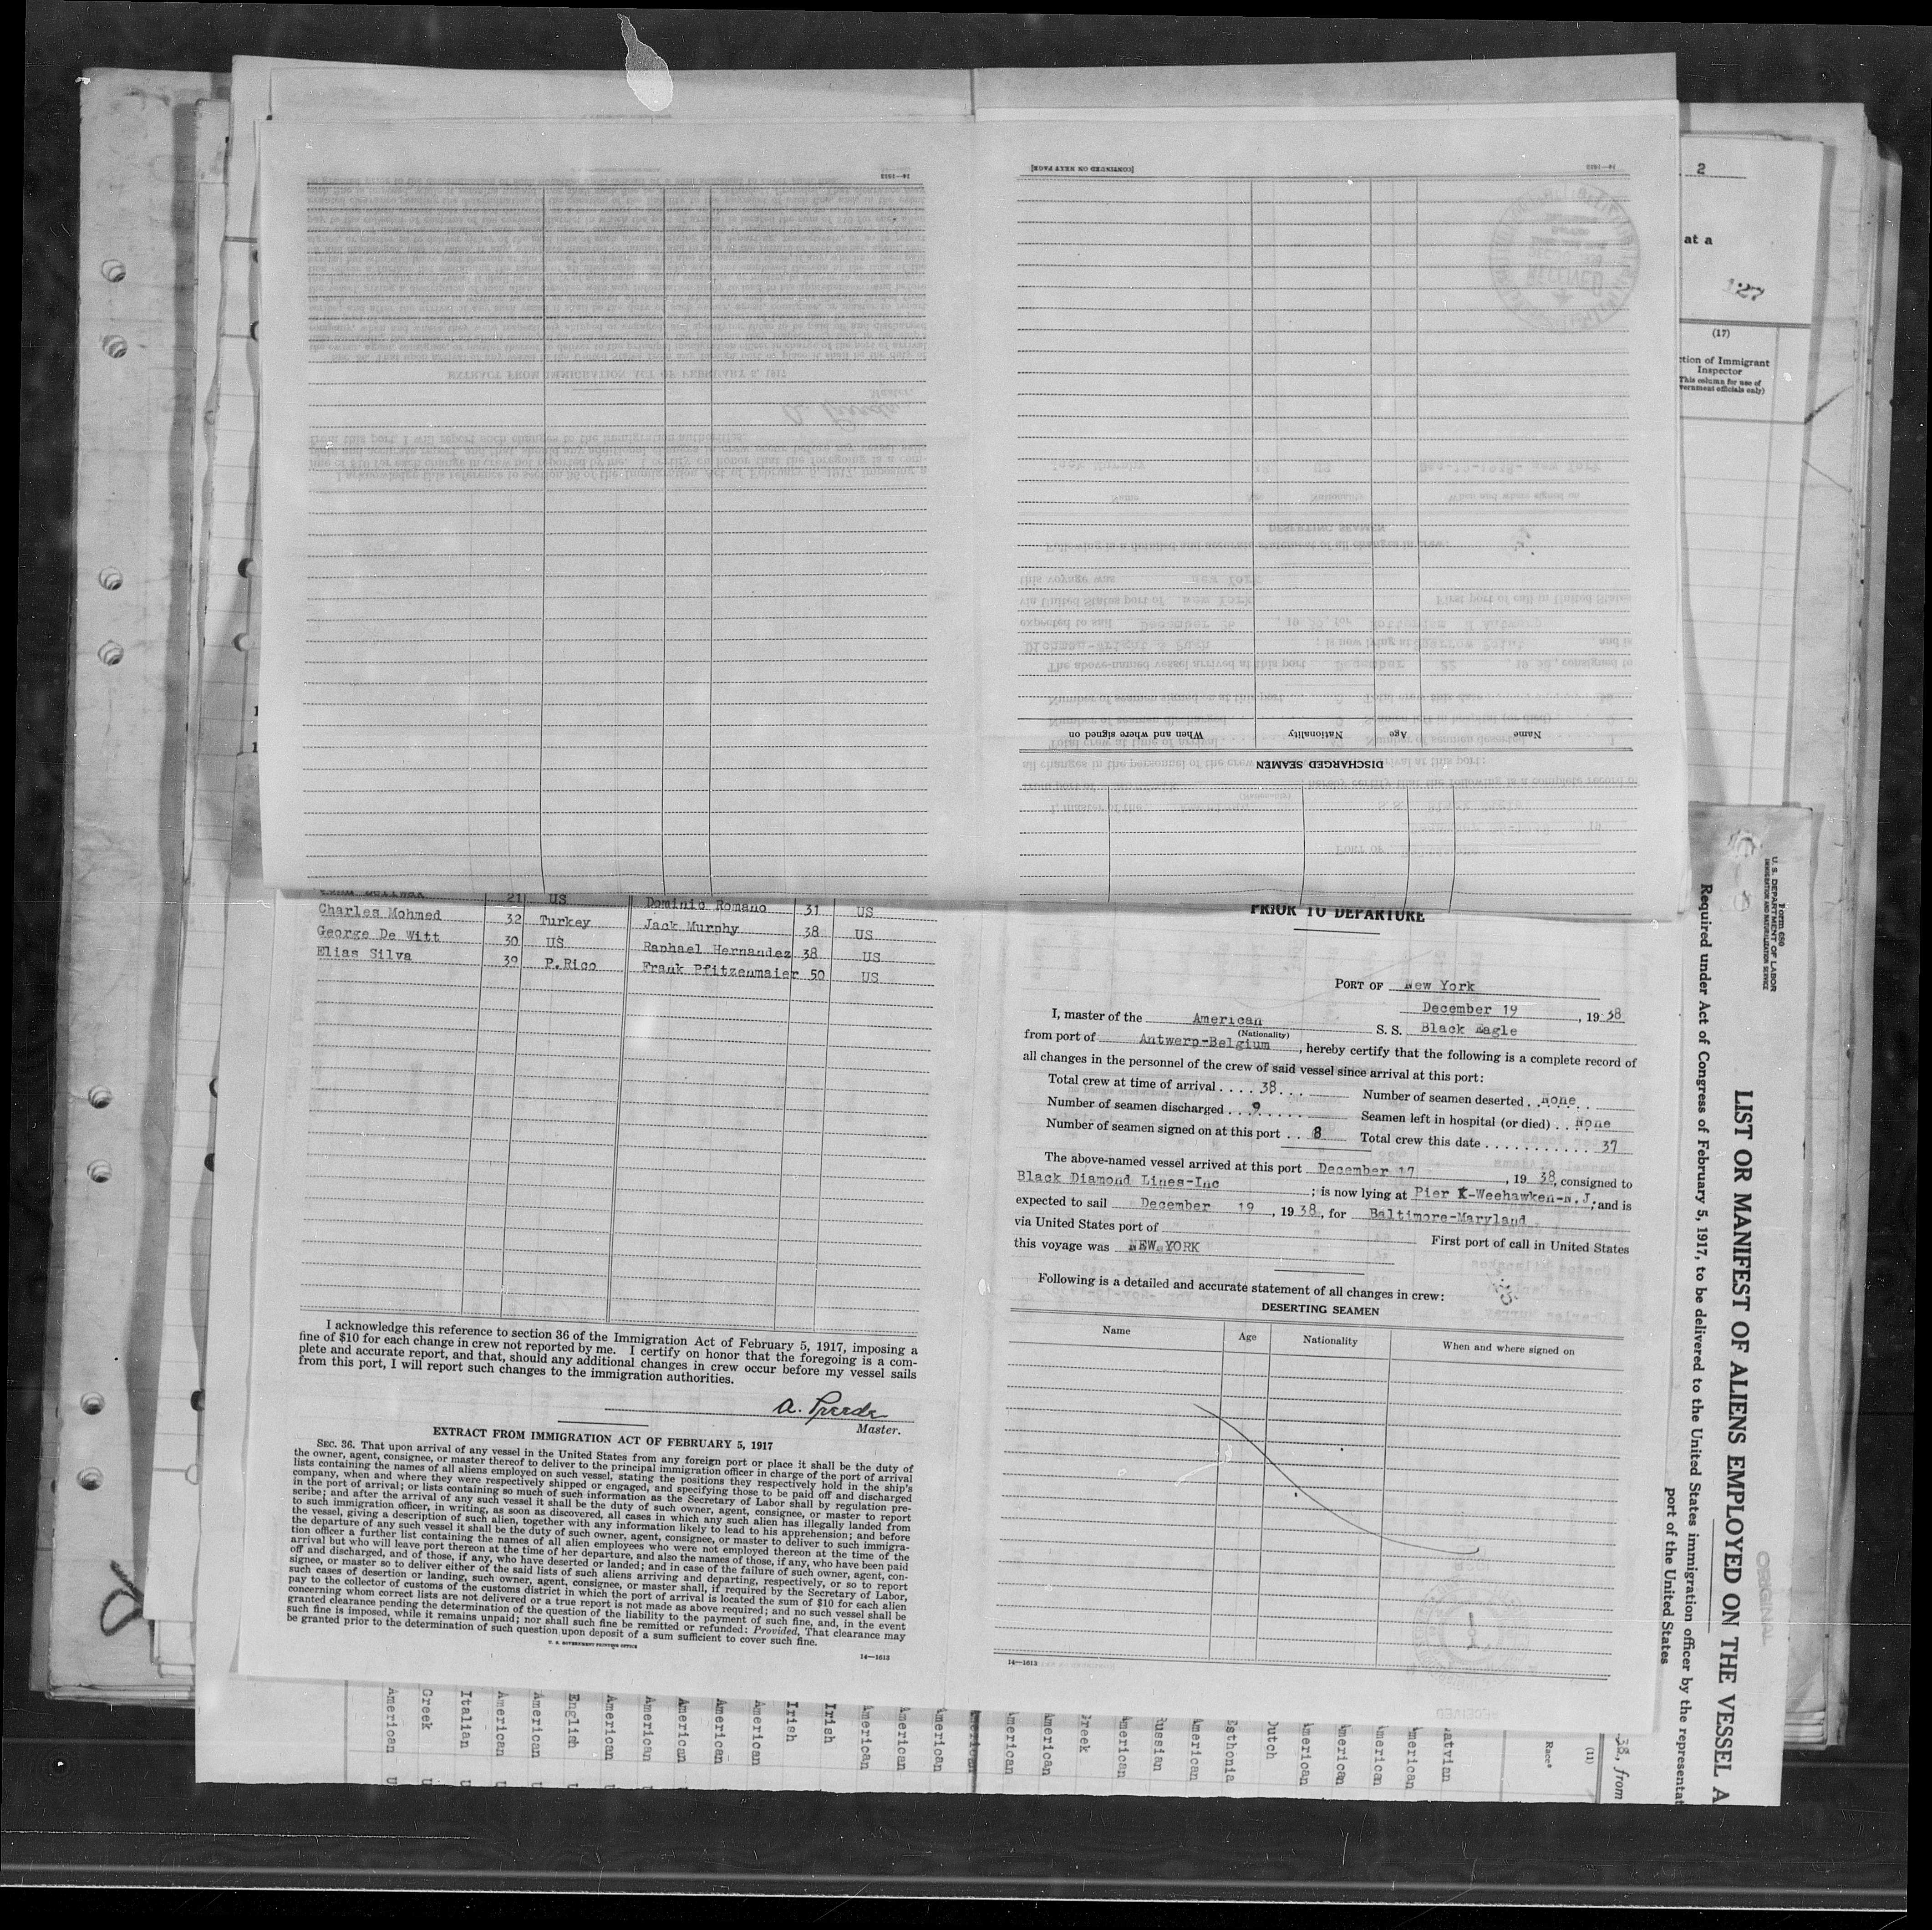 2
at a
127
(17)
ction of Immigrant
Inspector
This column for use of
vernment officials only)
[CONTINUED ON NEXT PAGE]
14—1613
14—1613
When and where signed on Nationality Age Name
DISCHARGED SEAMEN
21 US Dominic Romano 31 US
Charles Mohmed 32 Turkey Jack Murphy 38 US
George De Witt 30 US Raphael Hernandez 38 US
Elias Silva 39 P.Rico Frank Pfitzenmaier 50 US
I acknowledge this reference to section 36 of the Immigration Act of February 5, 1917, imposing a
fine of $10 for each change in crew not reported by me. I certify on honor that the foregoing is a com-
plete and accurate report, and that, should any additional changes in crew occur before my vessel sails
from this port, I will report such changes to the immigration authorities.
Master.
EXTRACT FROM IMMIGRATION ACT OF FEBRUARY 5, 1917
SEC. 36. That upon arrival of any vessel in the United States from any foreign port or place it shall be the duty of
the owner, agent, consignee, or master thereof to deliver to the principal immigration officer in charge of the port of arrival
lists containing the names of all aliens employed on such vessel, stating the positions they respectively hold in the ship's
company, when and where they were respectively shipped or engaged, and specifying those to be paid off and discharged
in the port of arrival; or lists containing so much of such information as the Secretary of Labor shall by regulation pre-
scribe; and after the arrival of any such vessel it shall be the duty of such owner, agent, consignee, or master to report
to such immigration officer, in writing, as soon as discovered, all cases in which any such alien has illegally landed from
the vessel, giving a description of such alien, together with any information likely to lead to his apprehension; and before
the departure of any such vessel it shall be the duty of such owner, agent, consignee, or master to deliver to such immigra-
tion officer a further list containing the names of all alien employees who were not employed thereon at the time of the
arrival but who will leave port thereon at the time of her departure, and also the names of those, if any, who have been paid
off and discharged, and of those, if any, who have deserted or landed; and in case of the failure of such owner, agent, con-
signee, or master so to deliver either of the said lists of such aliens arriving and departing, respectively, or so to report
such cases of desertion or landing, such owner, agent, consignee, or master shall, if required by the Secretary of Labor,
pay to the collector of customs of the customs district in which the port of arrival is located the sum of $10 for each alien
concerning whom correct lists are not delivered or a true report is not made as above required; and no such vessel shall be
granted clearance pending the determination of the question of the liability to the payment of such fine, and, in the event
such fine is imposed, while it remains unpaid; nor shall such fine be remitted or refunded: Provided, That clearance may
be granted prior to the determination of such question upon deposit of a sum sufficient to cover such fine.
U. S. GOVERNMENT PRINTING OFFICE
14—1613
PRIOR TO DEPARTURE
PORT OF New York
December 19, 1938
I, master of the American S. S. Black Eagle
(Nationality)
from port of Antwerp-Belgium, hereby certify that the following is a complete record of
all changes in the personnel of the crew of said vessel since arrival at this port:
Total crew at time of arrival . . . . 38. . . Number of seamen deserted . None
Number of seamen discharged . . . 9 . . . . . Seamen left in hospital (or died) . . None
Number of seamen signed on at this port . . 8 Total crew this date . . . . . . . . . . . 37
The above-named vessel arrived at this port December 17, 1938, consigned to
Black Diamond Lines-Inc ; is now lying at Pier K-Weehawken-N.J., and is
expected to sail December 19, 1938, for Baltimore-Maryland
via United States port of First port of call in United States
this voyage was NEW YORK
Following is a detailed and accurate statement of all changes in crew:
DESERTING SEAMEN
Name Age Nationality When and where signed on
14—1613
Form 680
U. S. DEPARTMENT OF LABOR
IMMIGRATION AND NATURALIZATION SERVICE
ORIGINAL
LIST OR MANIFEST OF ALIENS EMPLOYED ON THE VESSEL A
Required under Act of Congress of February 5, 1917, to be delivered to the United States immigration officer by the representat
port of the United States
38, from
(11)
Race*
Latvian
American
American
American
American
Dutch
Esthonia
American
Russian
American
Greek
American
American
American
American
American
American
Irish
Irish
American
American
American
American
American
English
American
American
Italian
Greek
American